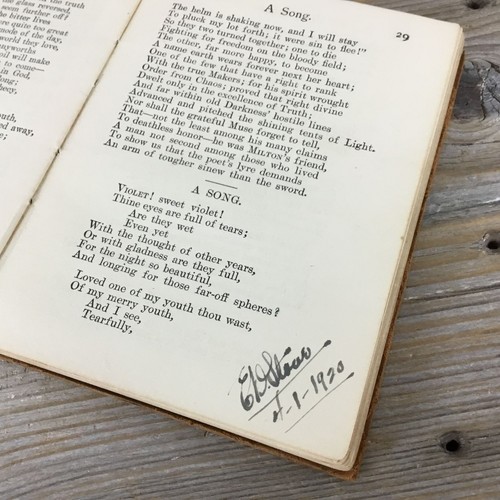 the truth
glass reversed
seen further off?
he bitter lives
are quite too great
mode of the day,
world they love,
nayworths
oil will make
to come—
in God,
ng:
hecy.
outh,
ed away,
e;
A Song.
29
The helm is shaking now, and I will stay
To pluck my lot forth; it were sin to flee!"
So they two turned together; one to die
Fighting for freedom on the bloody field;
The other, far more happy, to become
A name earth wears forever next her heart;
One of the few that have a right to rank
With the true Makers; for his spirit wrought
Order from Chaos; proved that right divine
Dwelt only in the excellence of Truth;
And far within old Darkness' hostile lines
Advanced and pitched the shining tents of Light.
Nor shall the grateful Muse forget to tell,
That—not the least among his many claims
To deathless honor—he was MILTON's friend,
A man not second among those who lived
To show us that the poet's lyre demands
An arm of tougher sinew than the sword.
A SONG.
VIOLET! sweet violet!
Thine eyes are full of tears;
Are they wet
Even yet
With the thought of other years,
Or with gladness are they full,
For the night so beautiful,
And longing for those far-off spheres?
Loved one of my youth thou wast,
Of my merry youth,
And I see,
Tearfully,
4-1-1920